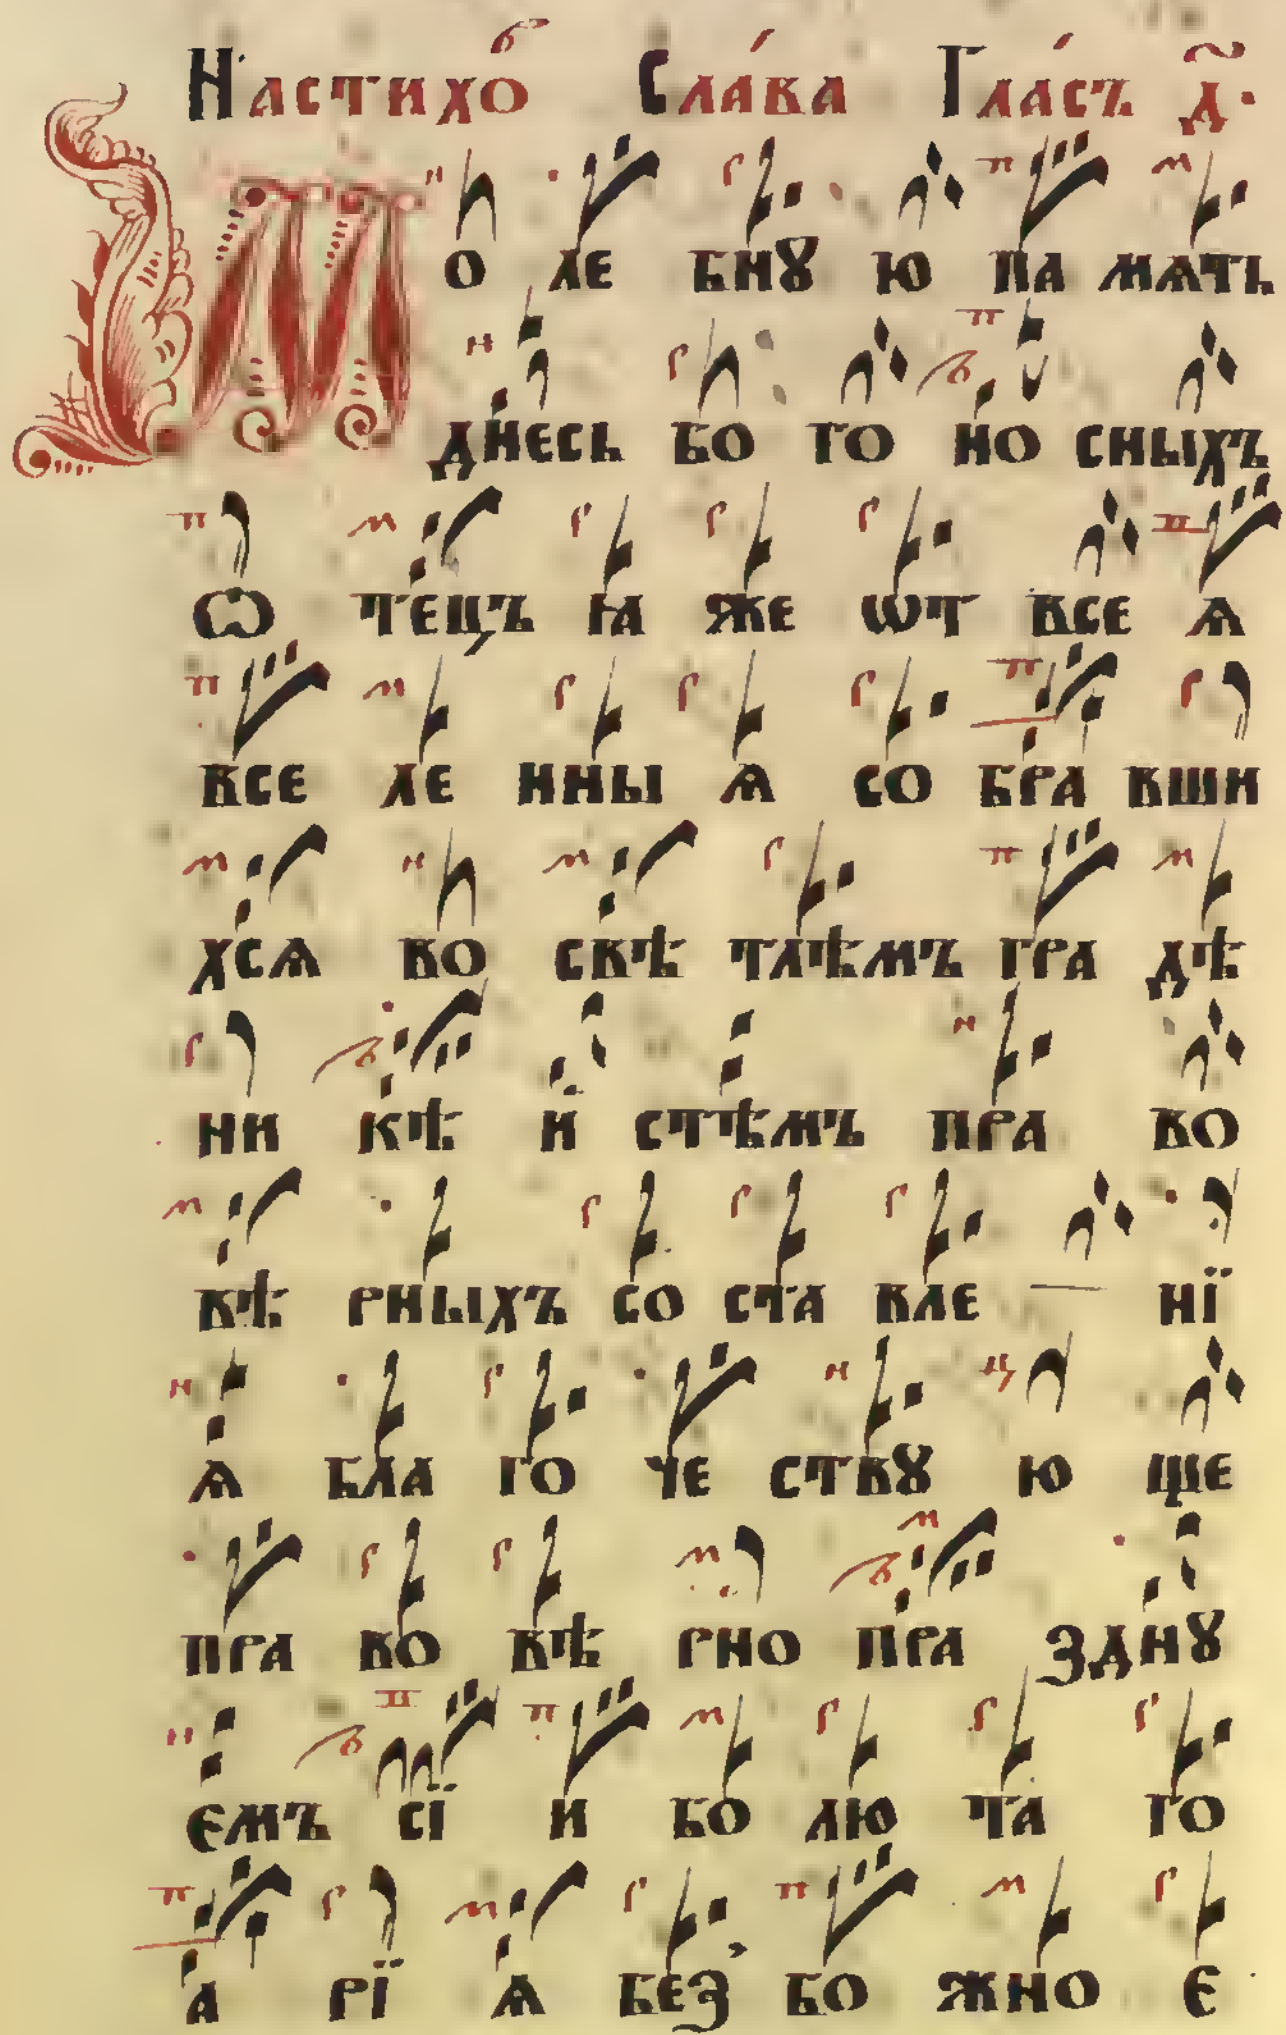 На стихо́в Сла́ва Гла́съ д҃.
Мо ле бнꙋ ю па мѧть
днесь бо го но сныхъ
ѡ тецъ ꙗ же ѡт все ѧ
все ле нны ѧ со бра вши
хсѧ во свѣ тлѣмъ гра дѣ
ни кѣ и стѣмъ пра во
вѣ рныхъ со ста вле — нї
ѧ бла го че ствꙋ ю ще
пра во вѣ рно пра зднꙋ
емъ сї и бо лю та го
а рї ѧ без бо жно е